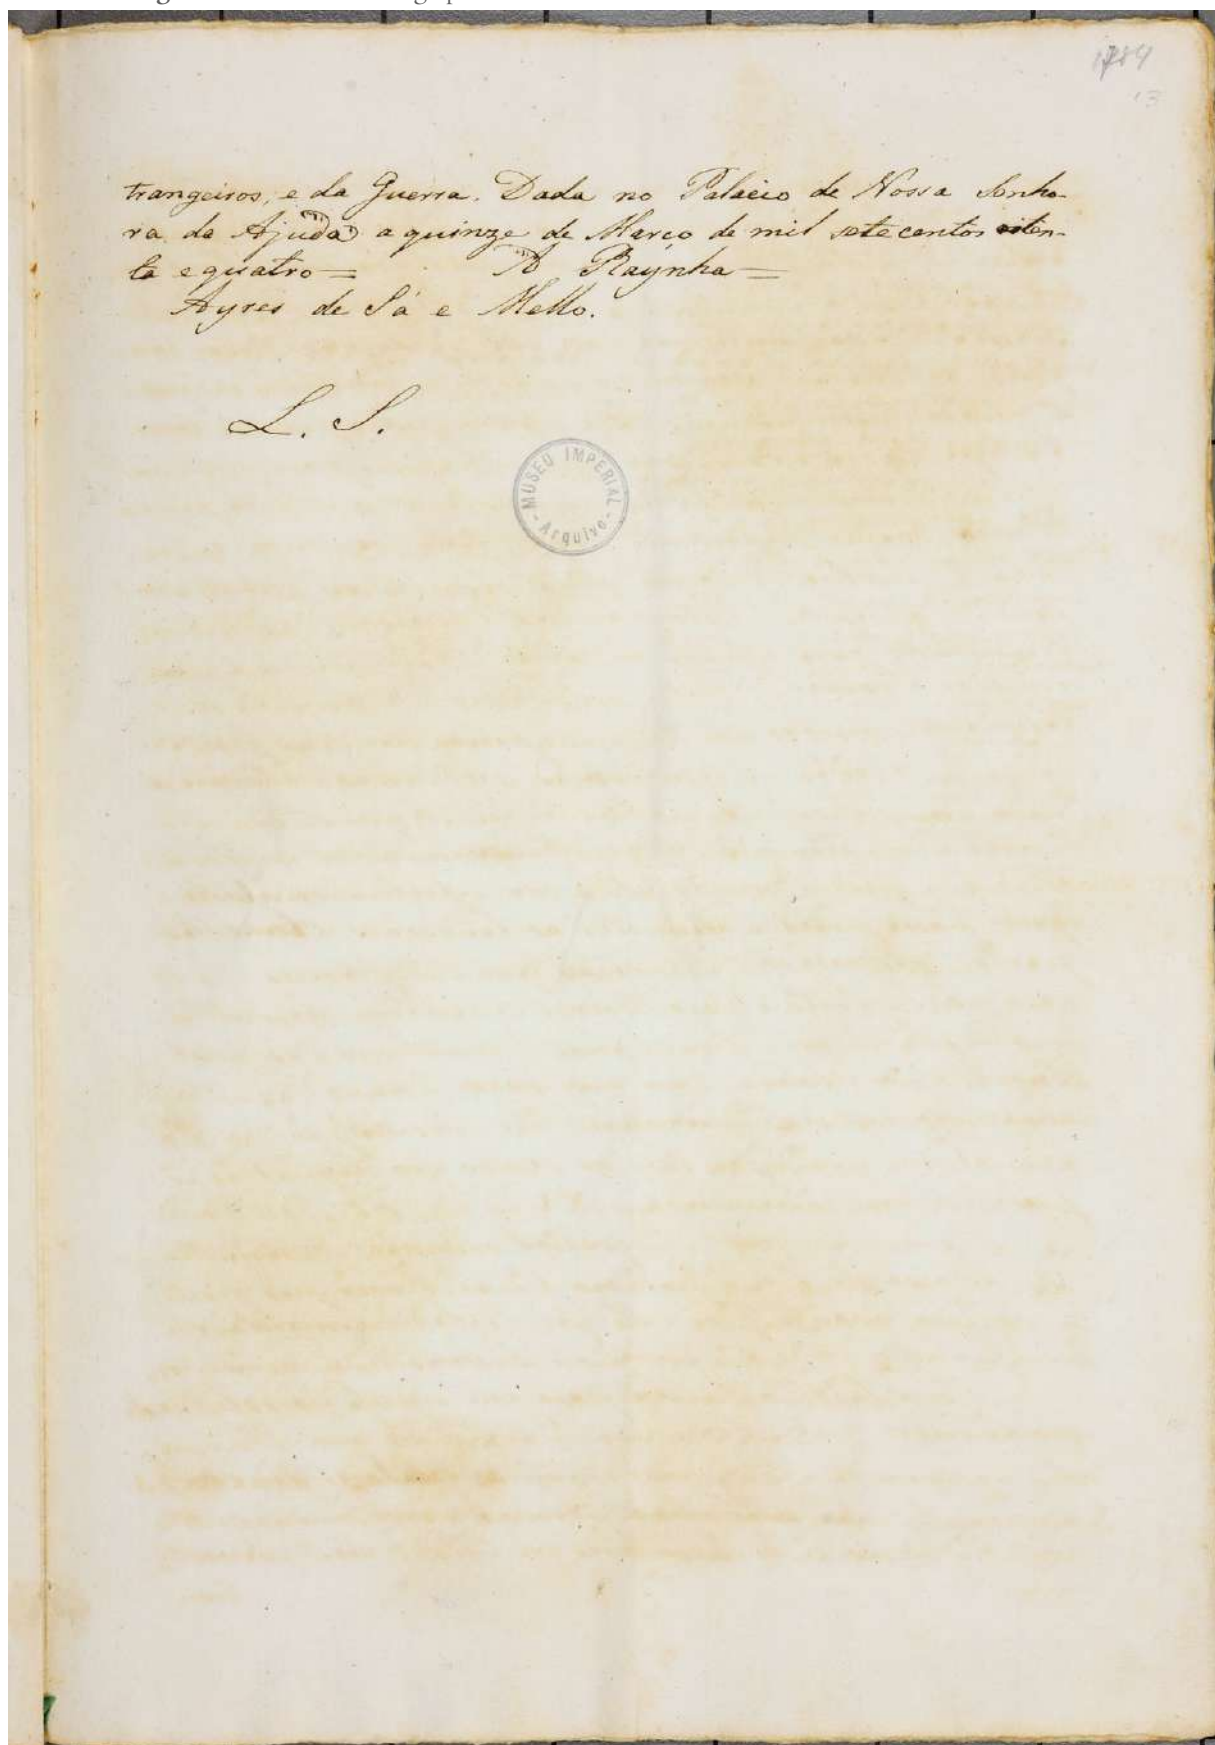 1784
13
trangeiros, e da Guerra. Dada no Palacio de Nossa Senho-
ra da Ajuda a quinze de Março de mil sete centos oiten-
ta e quatro = A Raynha =
Ayres de Sá e Mello.
L. S.
MUSEU IMPERIAL
- Arquivo -